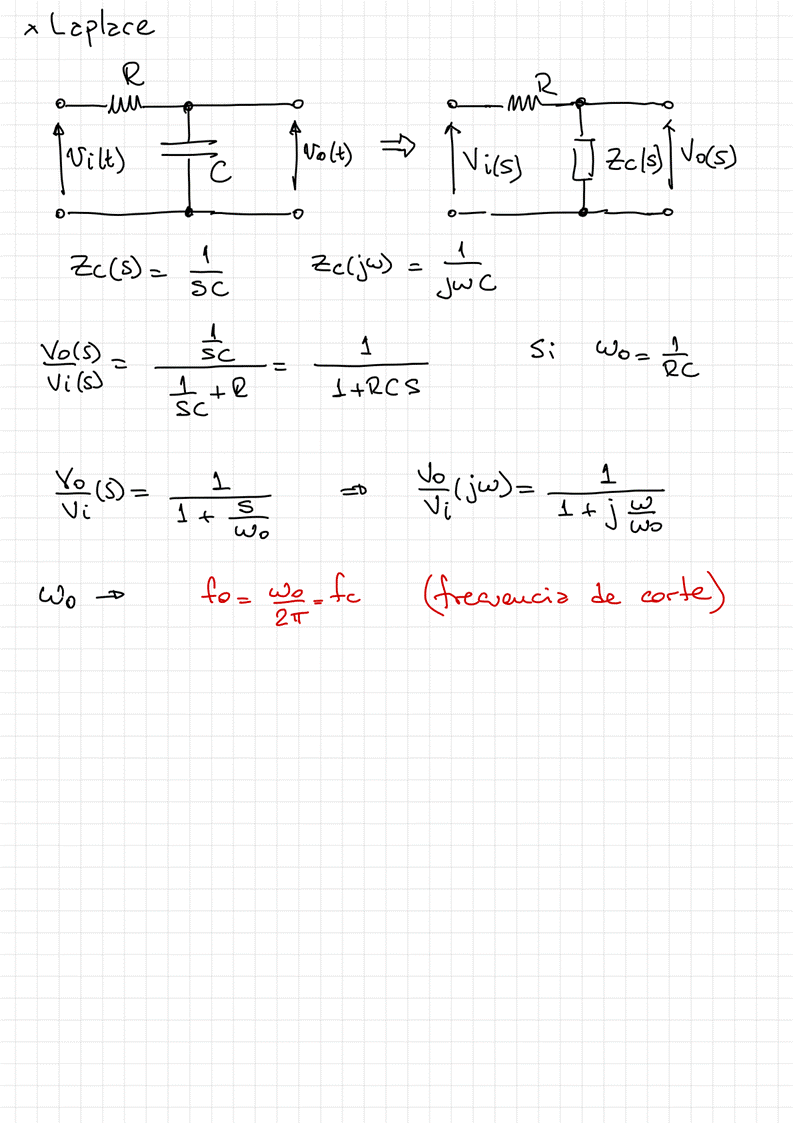 x Laplace
R R
Vi(t) C Vo(t) ⇒ Vi(s) Zc(s) Vo(s)
Zc(s) = 1/SC Zc(jω) = 1/jωC
Vo(s)/Vi(s) = (1/SC)/(1/SC + R) = 1/(1+RCS) Si ωo = 1/RC
Vo/Vi (s) = 1/(1 + S/ωo) ⇒ Vo/Vi (jω) = 1/(1 + j ω/ωo)
ωo → fo = ωo/2π = fc (frecuencia de corte)